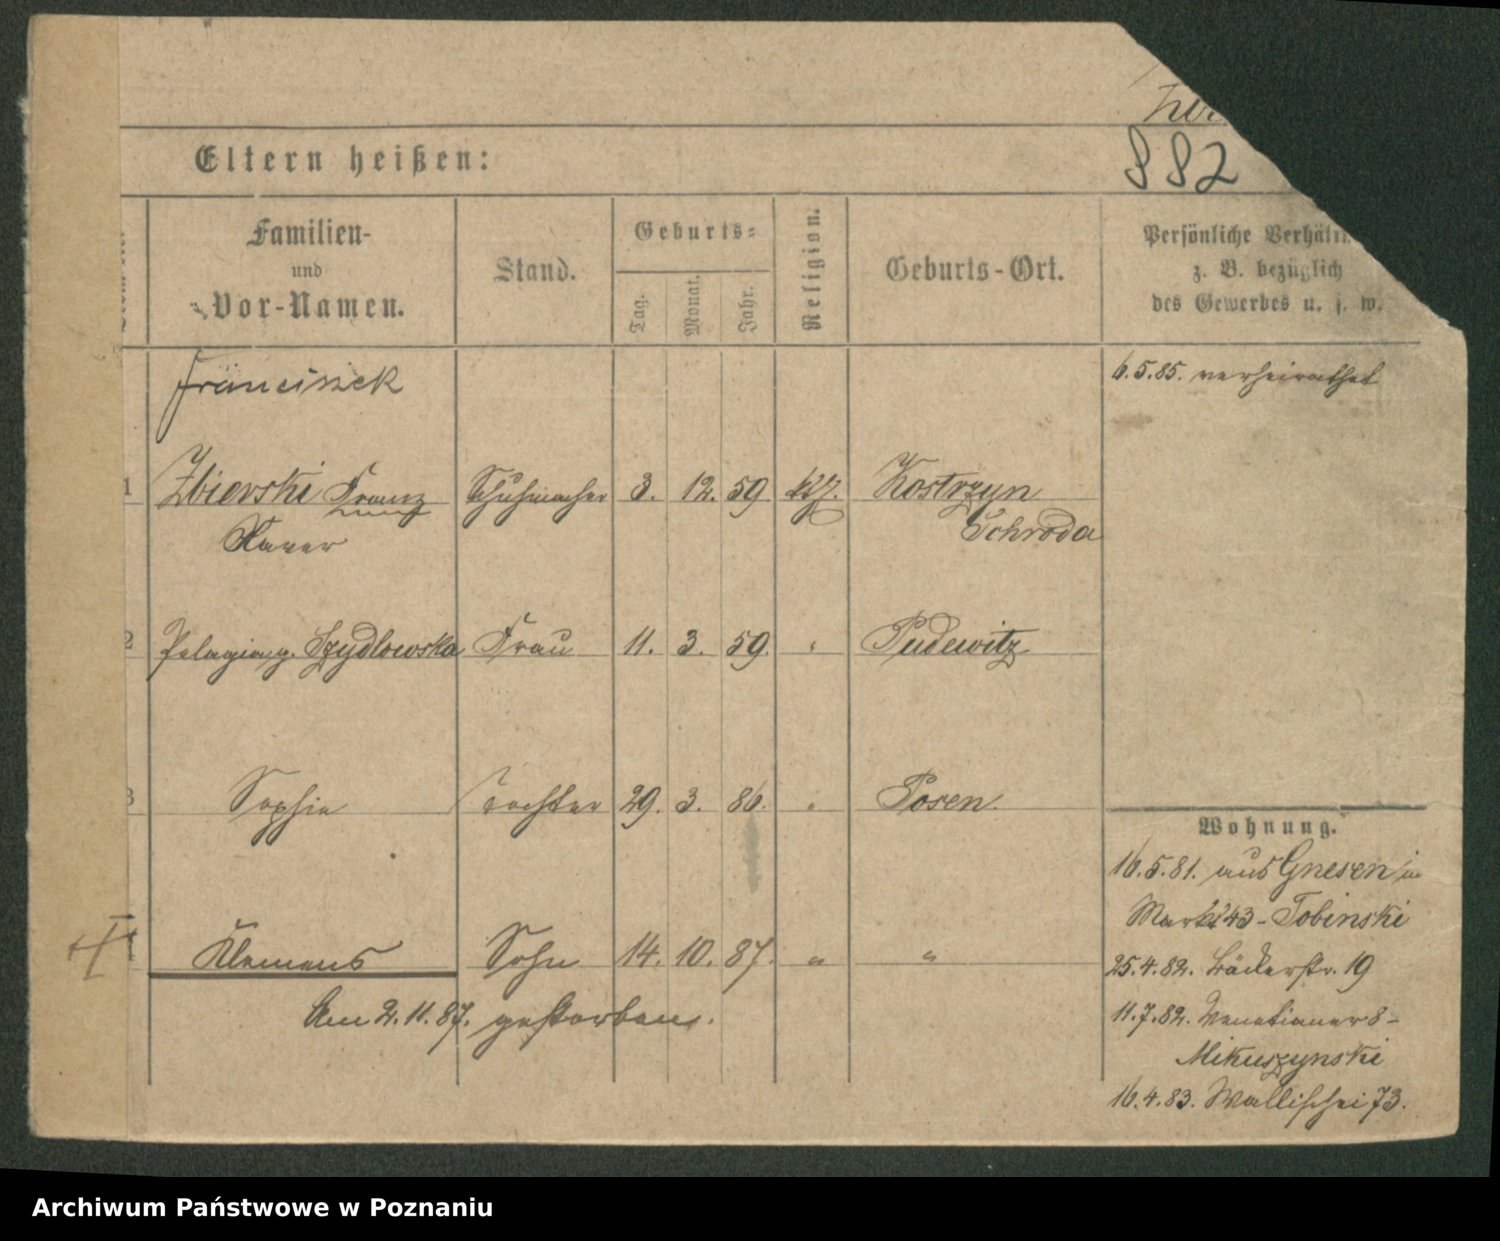 882
Eltern heißen:
Familien-
und
Vor-Namen.
Stand.
Geburts-
Tag.
Monat.
Jahr.
Religion.
Geburts-Ort.
Persönliche
z. B. bezüglich
des Gewerbes u. s. w.
Franciszek
6.5.85. verheirathet
1 Zbierski Franz Schuhmacher 3. 12. 59 kth. Kostrzyn
Xaver Schroda
2 Pelagia g. Szydlowska Frau 11. 3. 59. " Pudewitz
3 Sophie Tochter 29. 3. 86. " Posen.
Klemens Sohn 14. 10. 87. " "
Am 2.11.87. gestorben.
Wohnung.
16.5.81. aus Gnesen in
Markt 43 - Tobinski
25.4.82. Bäckerstr. 19
11.7.82. Venetianer 8 -
Mikuszynski
16.4.83. Wallischei 73.
Archiwum Państwowe w Poznaniu